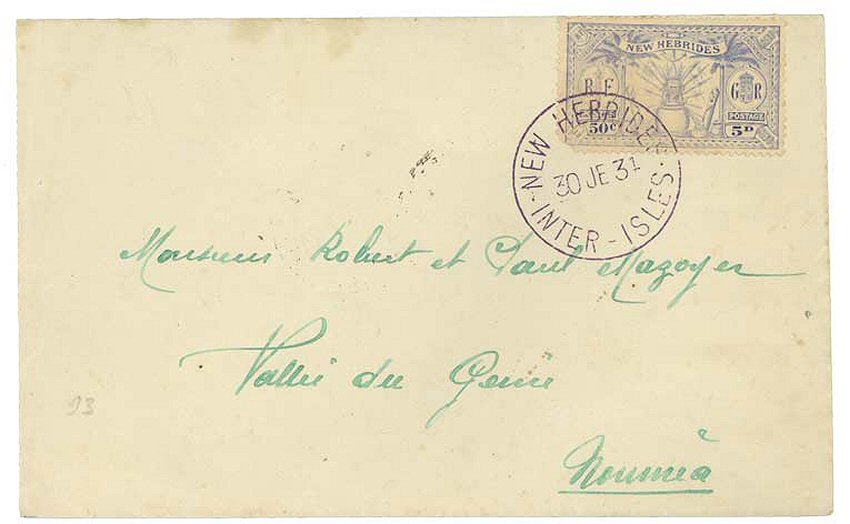 NEW HEBRIDES
R F
G R
POSTAGE
50c
5D
NEW HEBRIDES
30 JE 31
INTER-ISLES
Monsieur Robert et Paul Mazoyer
Vallée du Génie
Nouméa
93